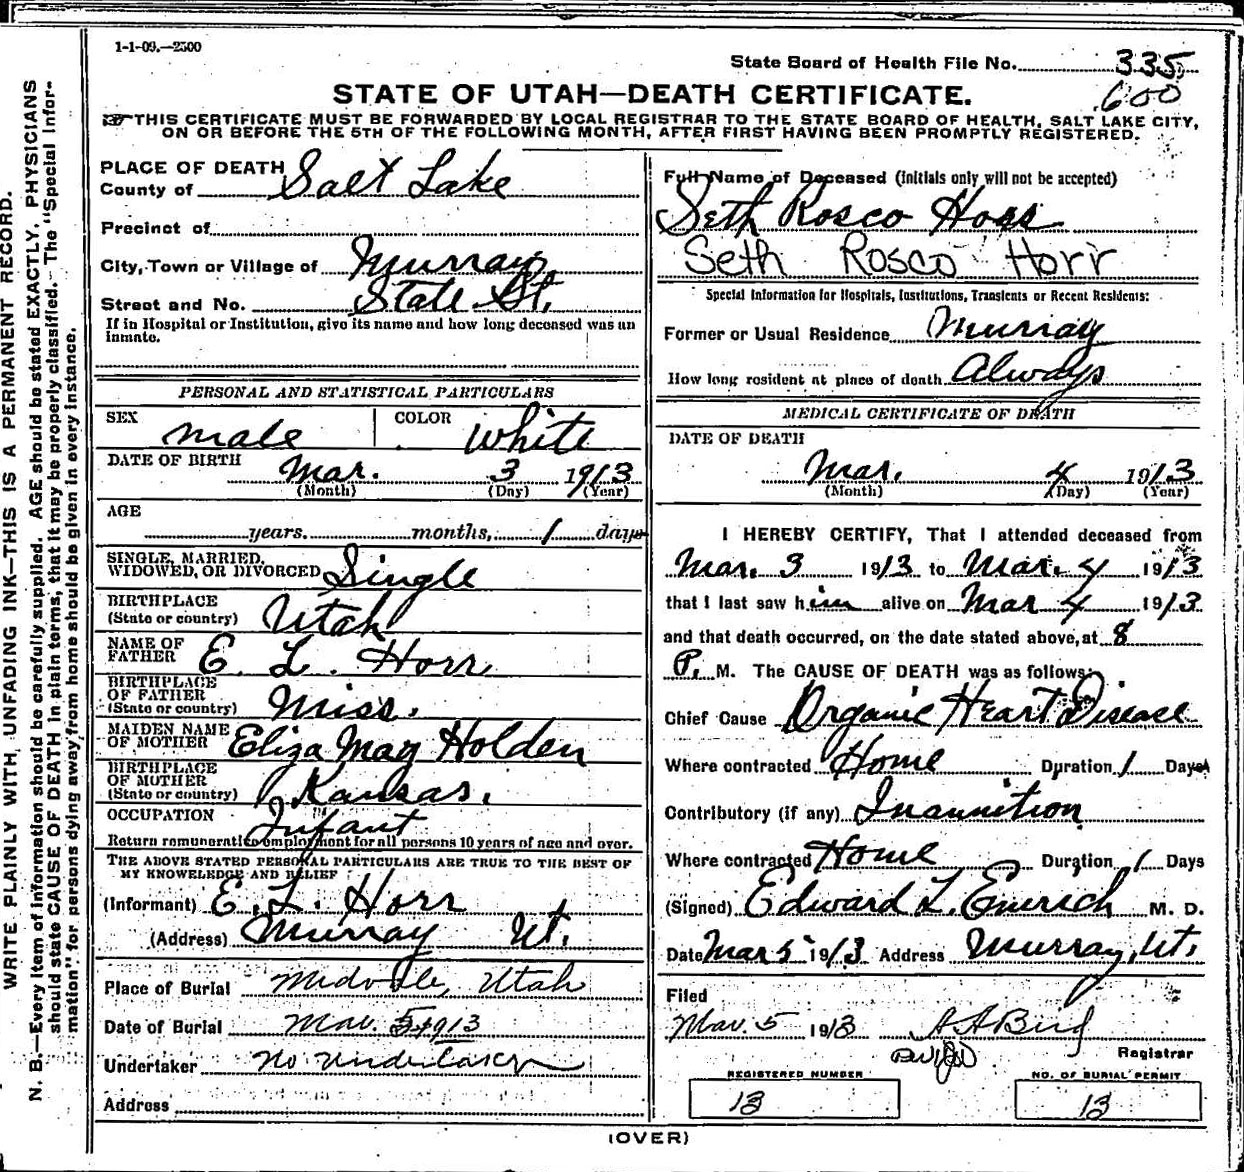 1-1-09.—2500
State Board of Health File No. 335
600
STATE OF UTAH—DEATH CERTIFICATE.
THIS CERTIFICATE MUST BE FORWARDED BY LOCAL REGISTRAR TO THE STATE BOARD OF HEALTH, SALT LAKE CITY,
ON OR BEFORE THE 5TH OF THE FOLLOWING MONTH, AFTER FIRST HAVING BEEN PROMPTLY REGISTERED.
WRITE PLAINLY WITH UNFADING INK—THIS IS A PERMANENT RECORD.
N. B.—Every item of information should be carefully supplied. AGE should be stated EXACTLY. PHYSICIANS
should state CAUSE OF DEATH in plain terms, that it may be properly classified. The "Special Infor-
mation" for persons dying away from home should be given in every instance.
PLACE OF DEATH
County of Salt Lake
Precinct of
City, Town or Village of Murray
Street and No. State St.
If in Hospital or Institution, give its name and how long deceased was an
inmate.
PERSONAL AND STATISTICAL PARTICULARS
SEX male COLOR white
DATE OF BIRTH Mar. 3 1913
(Month) (Day) (Year)
AGE
years. months, 1 days
SINGLE, MARRIED,
WIDOWED, OR DIVORCED Single
BIRTHPLACE
(State or country) Utah
NAME OF
FATHER E. L. Horr
BIRTHPLACE
OF FATHER
(State or country) Miss.
MAIDEN NAME
OF MOTHER Eliza May Holden
BIRTHPLACE
OF MOTHER
(State or country) Kansas.
OCCUPATION Infant
Return remunerative employment for all persons 10 years of age and over.
THE ABOVE STATED PERSONAL PARTICULARS ARE TRUE TO THE BEST OF
MY KNOWLEDGE AND BELIEF
(Informant) E. L. Horr
(Address) Murray Ut.
Place of Burial Midvale, Utah
Date of Burial Mar. 5 1913
Undertaker No undertaker
Address
Full Name of Deceased (initials only will not be accepted)
Seth Rosco Horr
Seth Rosco Horr
Special Information for Hospitals, Institutions, Transients or Recent Residents:
Former or Usual Residence Murray
How long resident at place of death Always
MEDICAL CERTIFICATE OF DEATH
DATE OF DEATH
Mar. 4 1913
(Month) (Day) (Year)
I HEREBY CERTIFY, That I attended deceased from
Mar. 3 1913 to Mar. 4 1913
that I last saw him alive on Mar 4 1913
and that death occurred, on the date stated above, at 8
P. M. The CAUSE OF DEATH was as follows:
Chief Cause Organic Heart Disease
Where contracted Home Duration 1 Days
Contributory (if any) Inannition
Where contracted Home Duration 1 Days
(Signed) Edward L. Emerich M. D.
Date Mar 5 1913 Address Murray, Ut.
Filed
Mar. 5 1913 A A Bird
Registrar
REGISTERED NUMBER
13
NO. OF BURIAL PERMIT
13
(OVER)